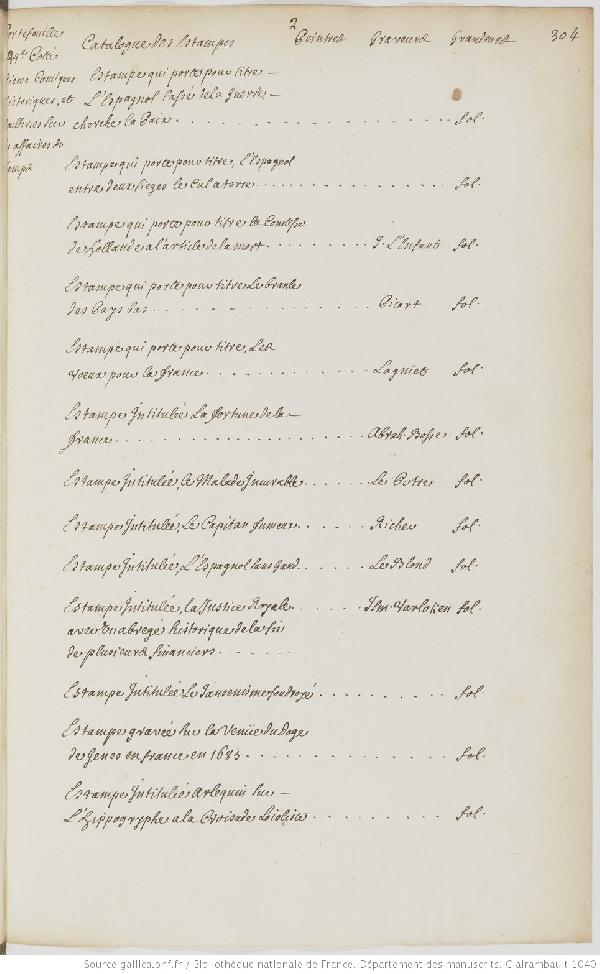 2
Portefeuille Catalogue des Estampes Peintres Graveurs Grandeurs 304
Cotté
Pieces Comiques Estampe qui porte pour titre
historiques, et L'Espagnol lassé de la Guerre
cherche la Paix fol.
affaires du
temps
Estampe qui porte pour titre, l'Espagnol
entre deux sieges le cul a terre fol.
Estampe qui porte pour titre la Comtesse
de hollande a l'article de la mort J. L'Enfant fol.
Estampe qui porte pour titre Le branle
des Pays bas Picart fol.
Estampe qui porte pour titre, Les
voeux pour la france Lagniet fol.
Estampe Intitulée La fortune de la
france Abrah. Bosse fol.
Estampe Intitulée, le Malade Incurable Le Potre fol.
Estampe Intitulée, Le Capitan fumeur Richer fol.
Estampe Intitulée, L'Espagnol sans Gand Le Blond fol.
Estampe Intitulée, la Justice Royale Ihm. Varloken fol.
avec un abregé historique de la fin
de plusieurs financiers
Estampe Intitulée Le Jansenisme foudroyé fol.
Estampe gravée sur la Venüe du Doge
de Genes en france en 1685 fol.
Estampe Intitulée Arlequin sur
L'hippogryphe a la Croisade Loioliste fol.
Source gallica.bnf.fr / Bibliothèque nationale de France. Département des manuscrits. Clairambault 1040